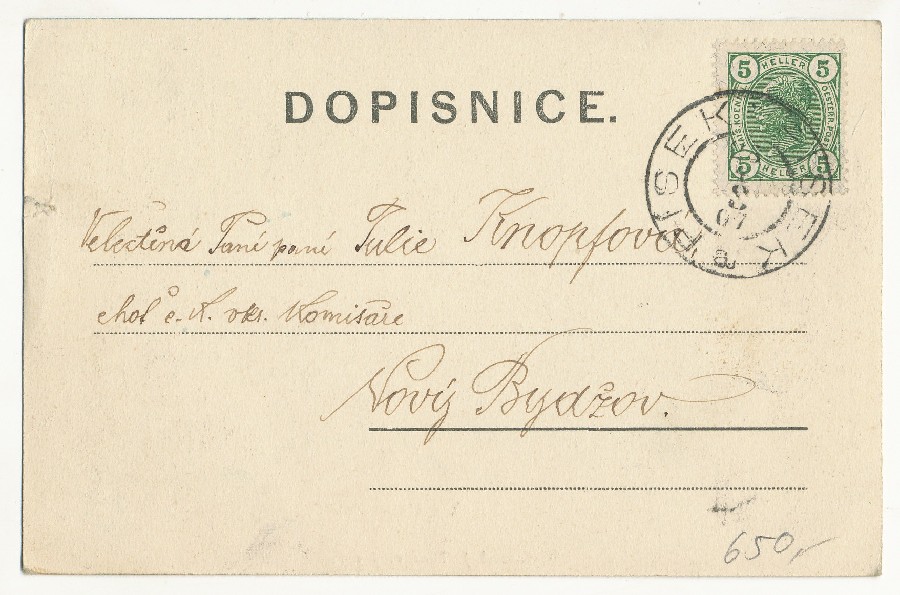 DOPISNICE.
5 HELLER 5
KAIS. KOEN. OESTERR. POST
5 HELLER 5
PISEK PISEK a
Velectěná Paní paní Julie Knopfová
choť c. k. okr. Komisaře
Nový Bydžov.
650,-